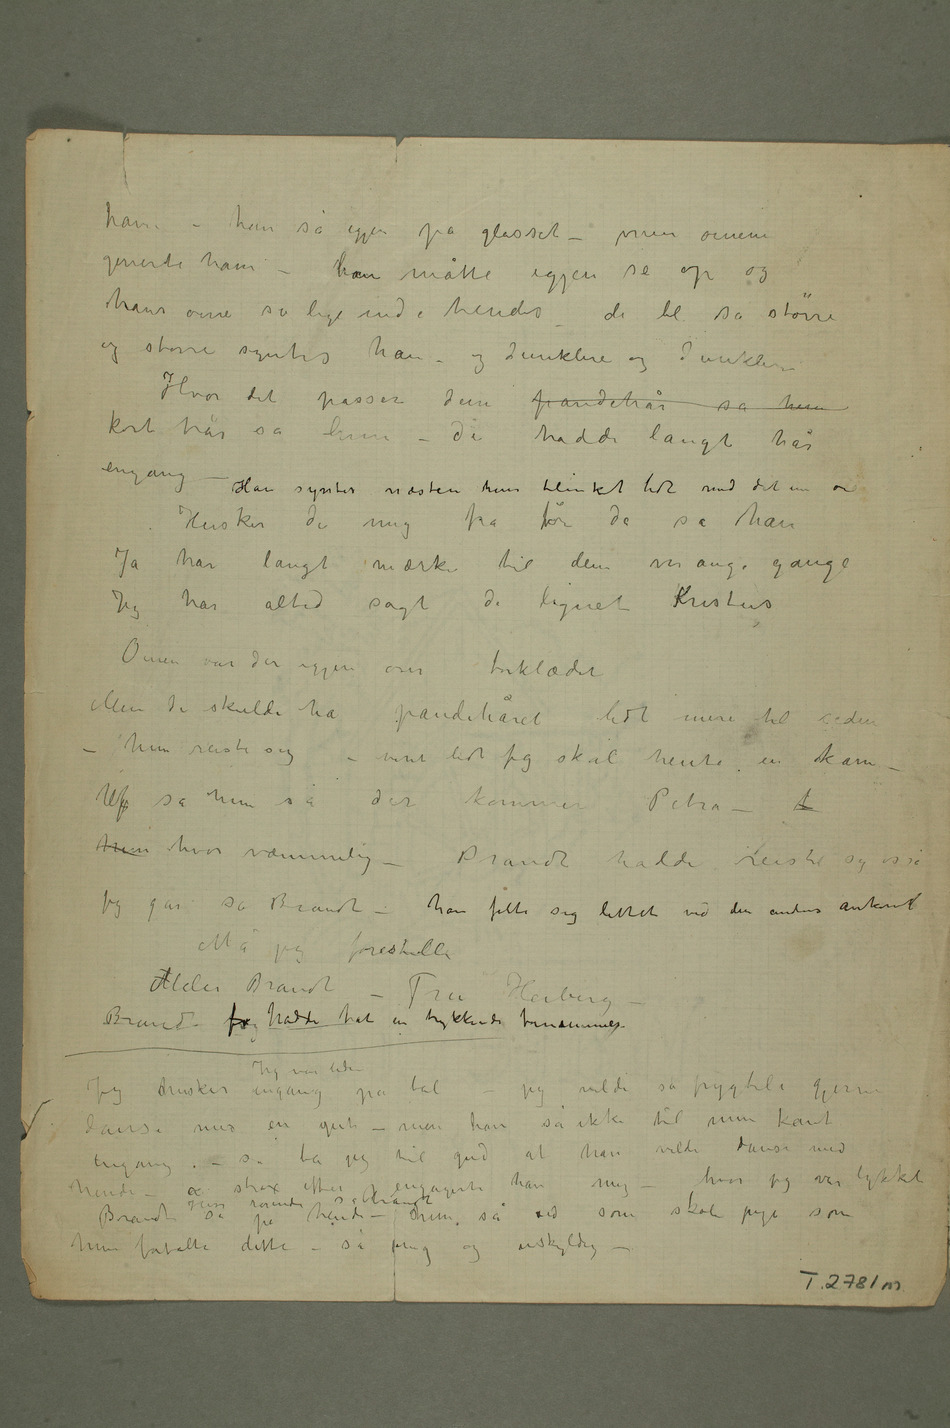 ham – han så igjen på glasset – men øinene
generte ham – han måtte igjen se op og
hans øine så lige ind i hendes – de ble så större
og større syntes han – og dunklere og dunklere
Hvor det passer dem pandehår sa hun
kort hår sa hun – De hadde langt hår
engang –
Han syntes næsten hun blinket lidt med det ene øie
Husker de mig fra før da sa han
Ja har langt mærke til dem mange gange
Jeg har altid sagt de lignet Kristus
Øinen var der igjen over tørklædet
Men de skulde ha pandehåret lidt mere til siden
– hun reiste sig – vent lidt jeg skal hente en kam –
Uf sa hun så der kommer Petra –
hun hvor væmmelig – Brandt hadde reist sig også
Jeg går sa Brandt – han følte sig lettet ved den andens ankomst
Må jeg forestille
Maler Brandt – Fru Heiberg –
Brandt hadde hat en trykkende fornemmelse
Jeg var liden
Jeg husker engang på bal – jeg vilde så frygteli gjerne
danse med en gut – men han så ikke til min kant
engang. – så ba jeg til gud at han vilde danse med
hende – & strax efter engagerte han mig – hvor jeg var lykkelig
Hvor rørende sa Brandt
Brandt så på hende – hun så ud som skole pige som
hun fortalte dette – så ung og uskyldig –
T. 2781